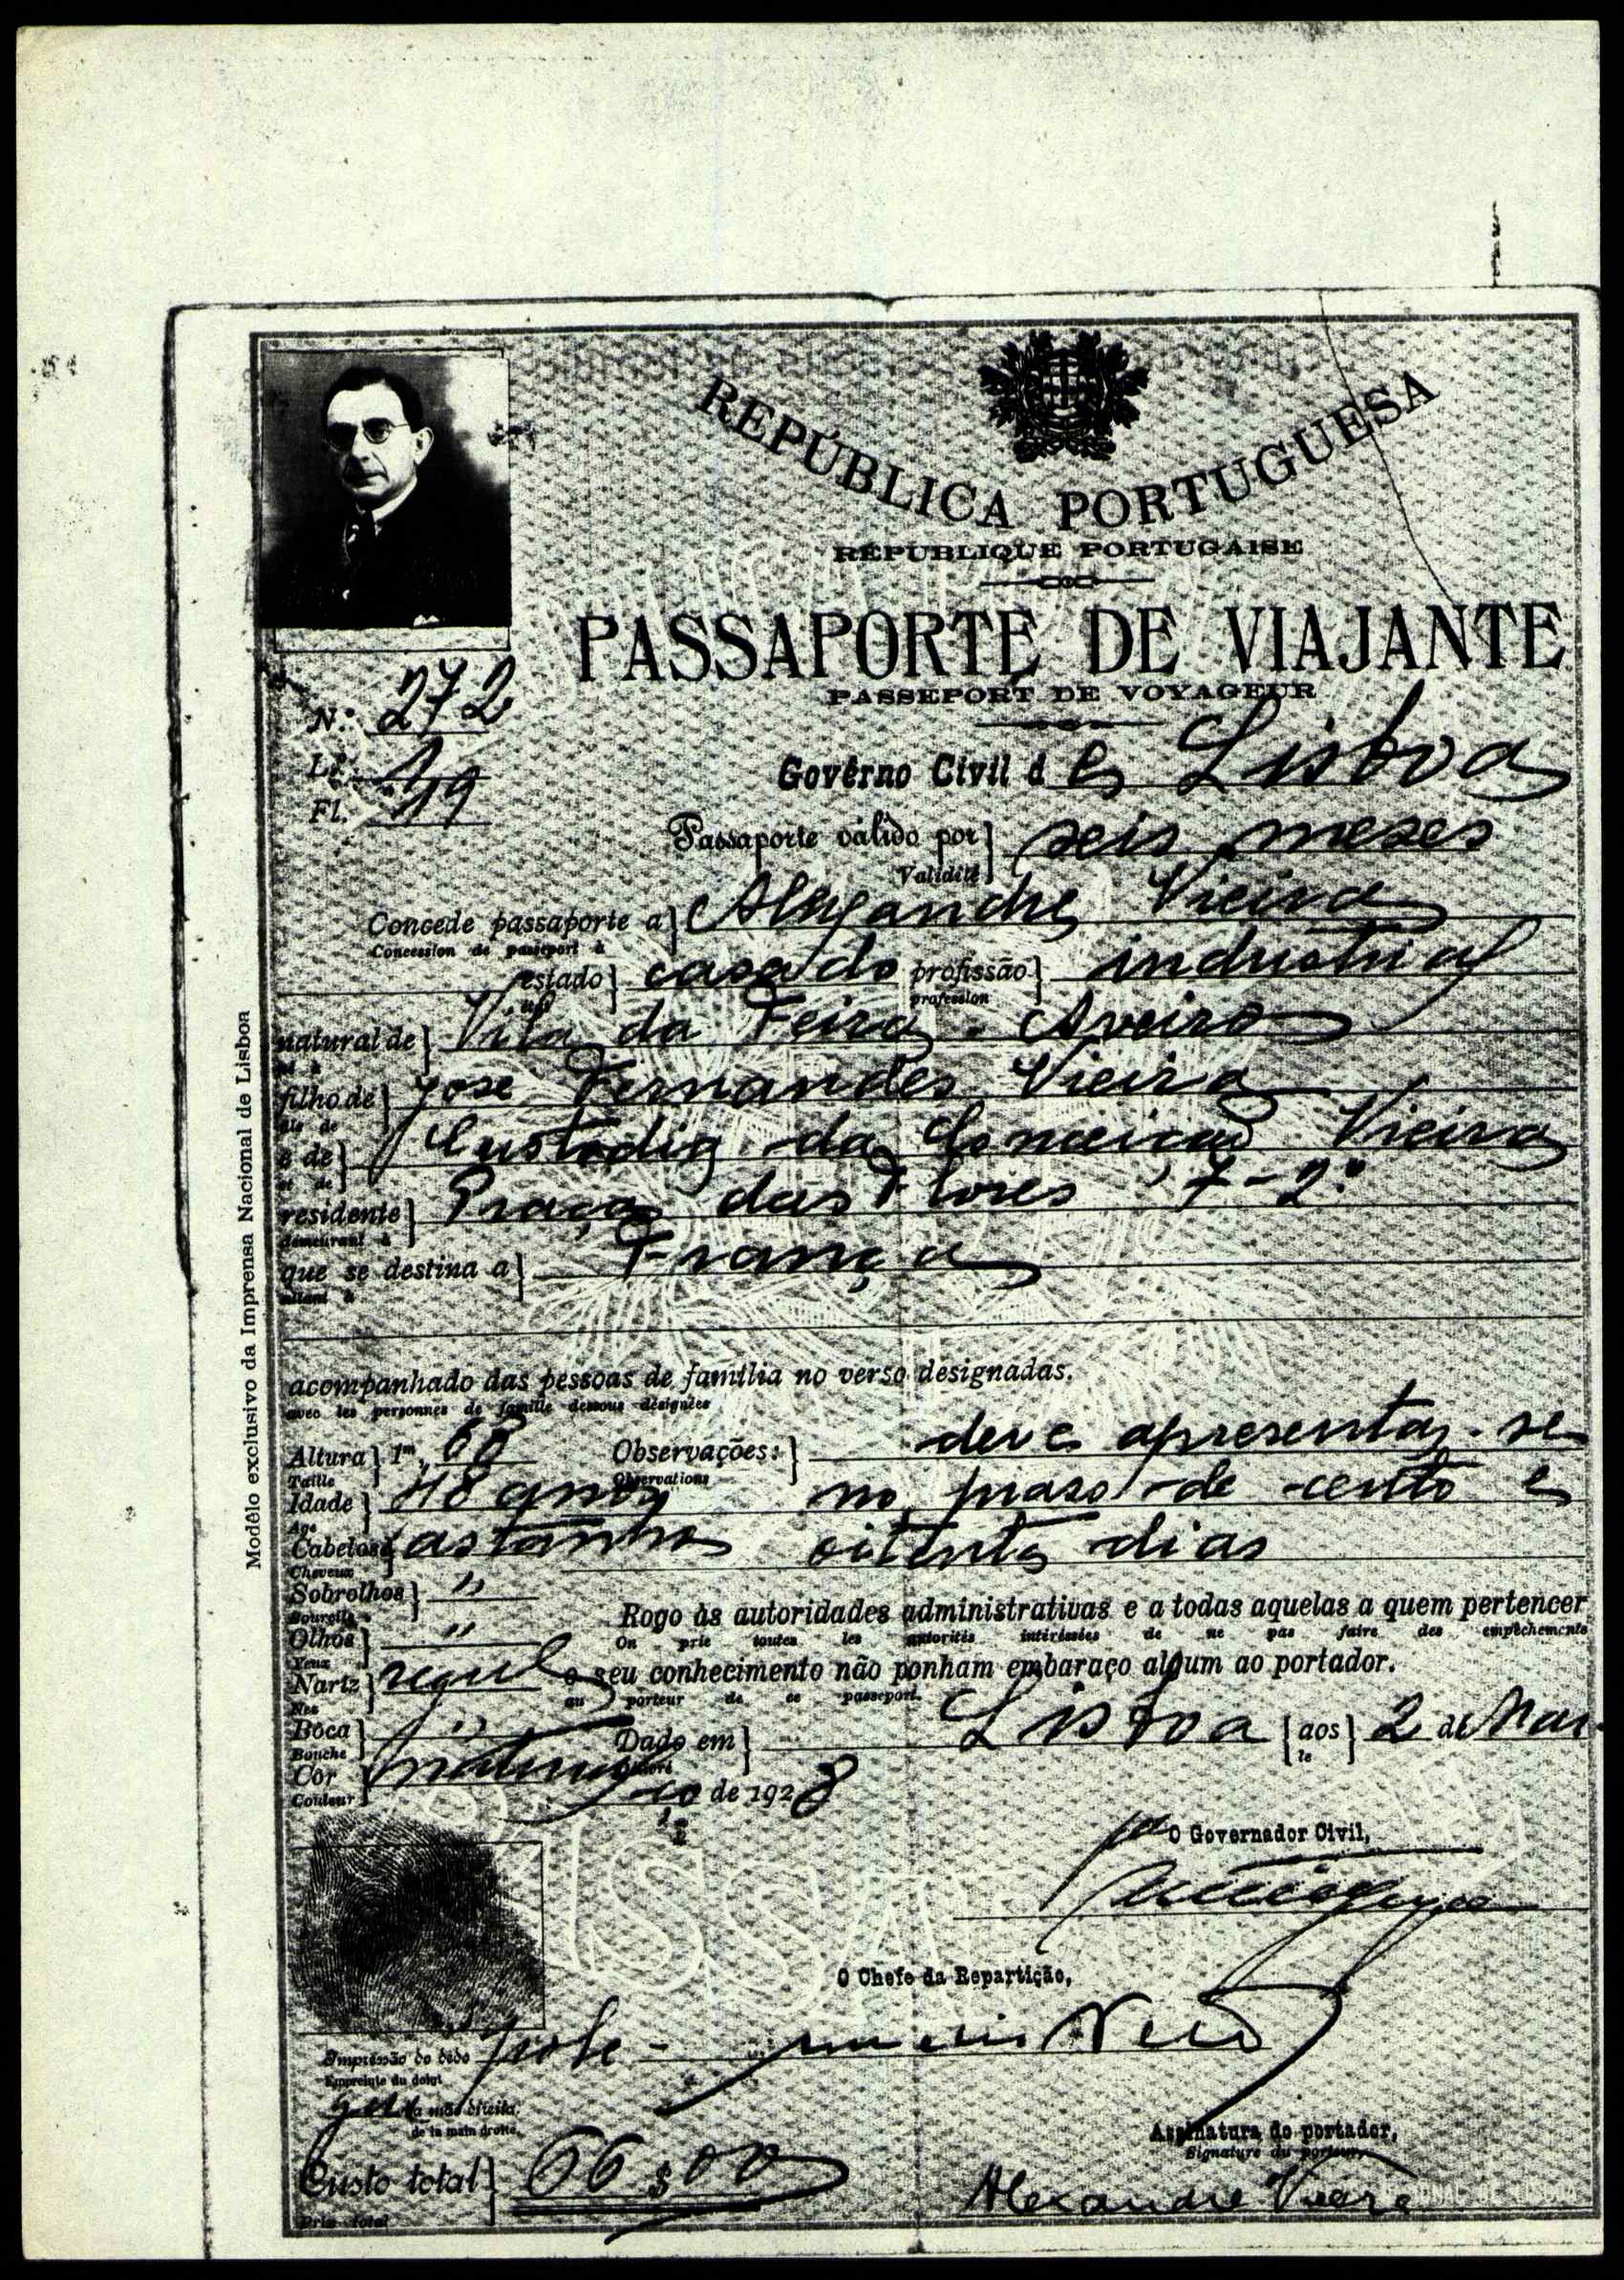 REPÚBLICA PORTUGUESA
RÉPUBLIQUE PORTUGAISE
PASSAPORTE DE VIAJANTE
PASSEPORT DE VOYAGEUR
N.º 272
L.º
Fl. 49
Govêrno Civil de Lisboa
Passaporte válido por} seis meses
Validité
Concede passaporte a} Alexandre Vieira
Concession de passeport à
estado} casado profissão} industrial
profession
natural de} Vila da Feira - Aveiro
filho de} José Fernandes Vieira
fils de
e de} Custodia da Conceicao Vieira
et de
residente} Praça das Flores, 7-2.º
demeurant à
que se destina a} França
allant à
acompanhado das pessoas de família no verso designadas.
avec les personnes de famille dessous désignées
Altura} 1m, 68 Observações:} deve apresentar-se
Taille Observations
Idade} 48 anos no praso de cento e
Age
Cabelos} castanhos oitenta dias
Cheveux
Sobrolhos} "
Sourcils
Olhos} "
Yeux
Rogo às autoridades administrativas e a todas aquelas a quem pertencer
On prie toutes les autorités intéressées de ne pas faire des empêchements
Nariz} regul o seu conhecimento não ponham embaraço algum ao portador.
Nez au porteur de ce passeport.
Boca} " Dado em} Lisboa {aos} 2 de Mar
Bouche le
Cor} natural ço de 1928
Couleur
O Governador Civil,
O Chefe da Repartição,
Impressão do dedo
Empreinte du doigt
da mão direita.
de la main droite.
Assinatura do portador,
Signature du porteur,
Custo total} 66$00
Prix total
Alexandre Vieira
Modêlo exclusivo da Imprensa Nacional de Lisboa